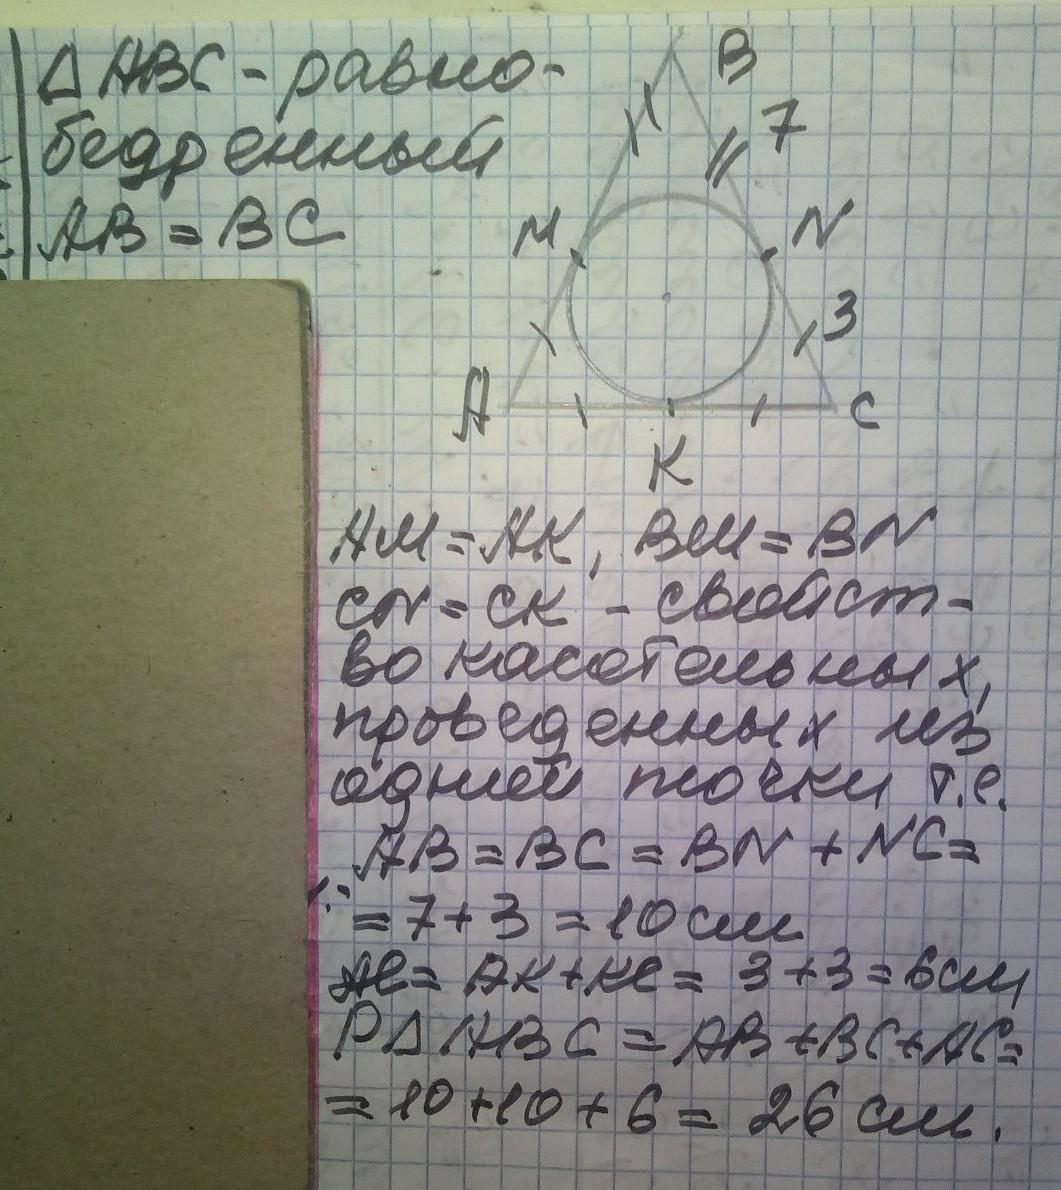 △ ABC - равно-
бедренный
AB = BC
B
7
M
N
3
A
C
K
AM = AK, BM = BN
CN = CK - свойст-
во касательных,
проведенных из
одной точки т.е.
AB = BC = BN + NC =
= 7 + 3 = 10 см
AC = AK + KC = 3 + 3 = 6 см
P△ABC = AB + BC + AC =
= 10 + 10 + 6 = 26 см.